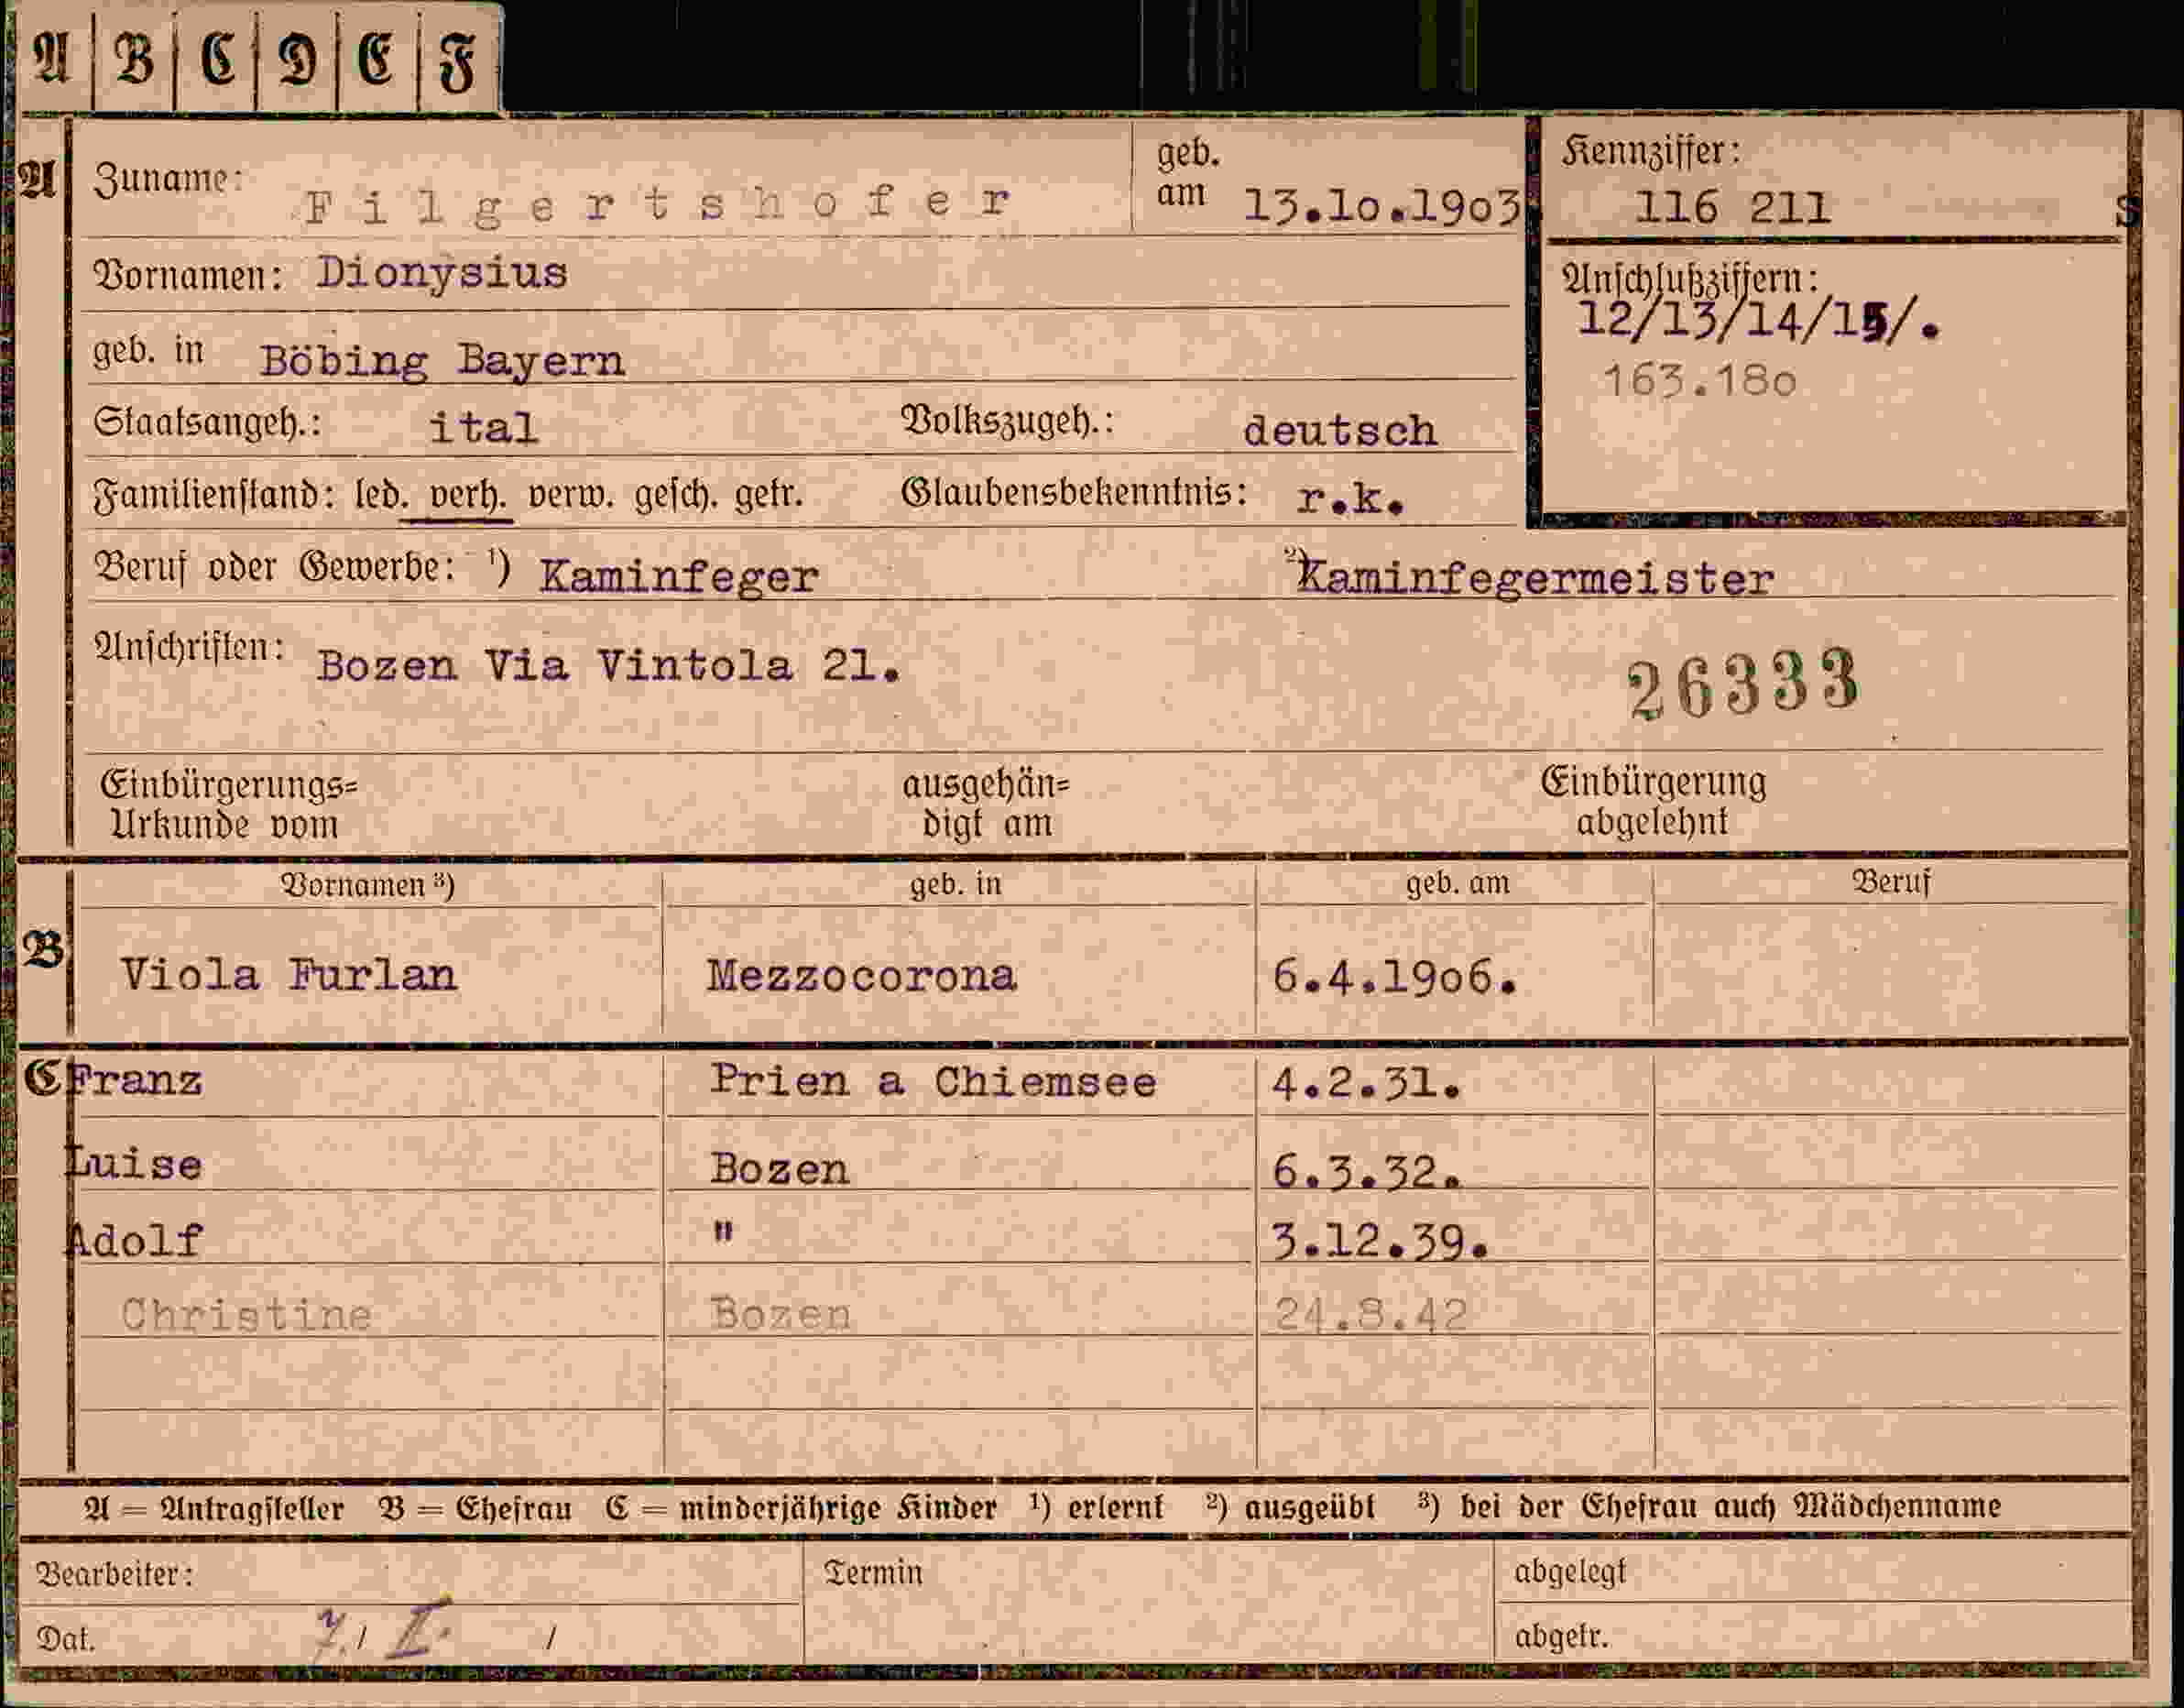 A B C D E F
A Zuname: Filgertshofer geb. am 13.10.1903 Kennziffer: 116 211 S
Vornamen: Dionysius
Anschlußziffern:
12/13/14/15/.
163.180
geb. in Böbing Bayern
Staatsangeh.: ital Volkszugeh.: deutsch
Familienstand: led. verh. verw. gesch. getr. Glaubensbekenntnis: r.k.
Beruf oder Gewerbe: 1) Kaminfeger 2) Kaminfegermeister
Anschriften: Bozen Via Vintola 21.
26333
Einbürgerungs= ausgehän= Einbürgerung
Urkunde vom digt am abgelehnt
Vornamen 3) geb. in geb. am Beruf
B Viola Furlan Mezzocorona 6.4.1906.
C Franz Prien a Chiemsee 4.2.31.
Luise Bozen 6.3.32.
Adolf " 3.12.39.
Christine Bozen 24.8.42
A = Antragsteller B = Ehefrau C = minderjährige Kinder 1) erlernt 2) ausgeübt 3) bei der Ehefrau auch Mädchenname
Bearbeiter: Termin abgelegt
Dat. 7./ I. / abgetr.